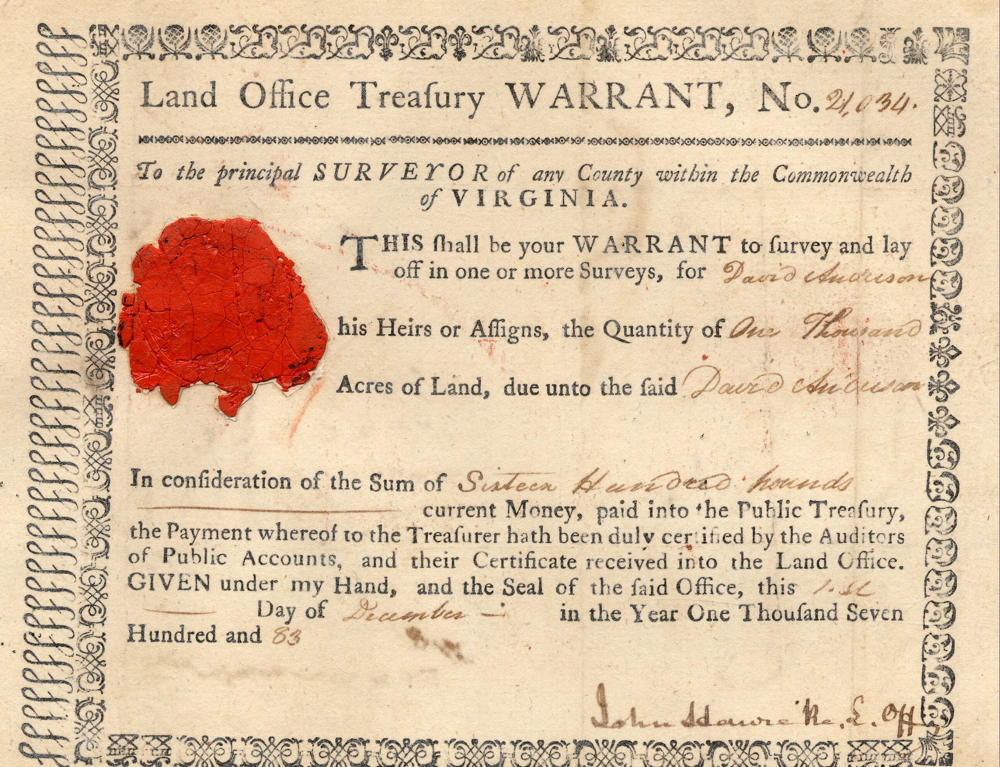 Land Office Treaſury WARRANT, No. 21,034.
To the principal SURVEYOR of any County within the Commonwealth
of VIRGINIA.
THIS ſhall be your WARRANT to ſurvey and lay
off in one or more Surveys, for David Anderson
his Heirs or Aſſigns, the Quantity of One Thousand
Acres of Land, due unto the ſaid David Anderson
In conſideration of the Sum of Sixteen Hundred pounds
current Money, paid into the Public Treaſury,
the Payment whereof to the Treaſurer hath been duly certified by the Auditors
of Public Accounts, and their Certificate received into the Land Office.
GIVEN under my Hand, and the Seal of the ſaid Office, this 1st
Day of December in the Year One Thouſand Seven
Hundred and 83
John